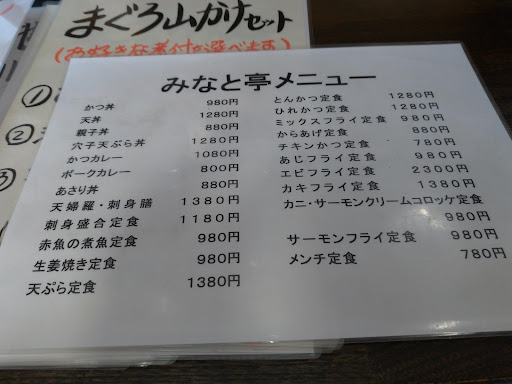 まぐろ山かけセット
(お好きな煮付が選べます)
①
②
みなと亭メニュー
かつ丼 980円
天丼 1280円
親子丼 880円
穴子天ぷら丼 1280円
かつカレー 1080円
ポークカレー 800円
あさり丼 880円
天婦羅・刺身膳 1380円
刺身盛合定食 1180円
赤魚の煮魚定食 980円
生姜焼き定食 980円
天ぷら定食 1380円
とんかつ定食 1280円
ひれかつ定食 1280円
ミックスフライ定食 980円
からあげ定食 880円
チキンかつ定食 780円
あじフライ定食 980円
エビフライ定食 2300円
カキフライ定食 1380円
カニ・サーモンクリームコロッケ定食
980円
サーモンフライ定食 980円
メンチ定食 780円